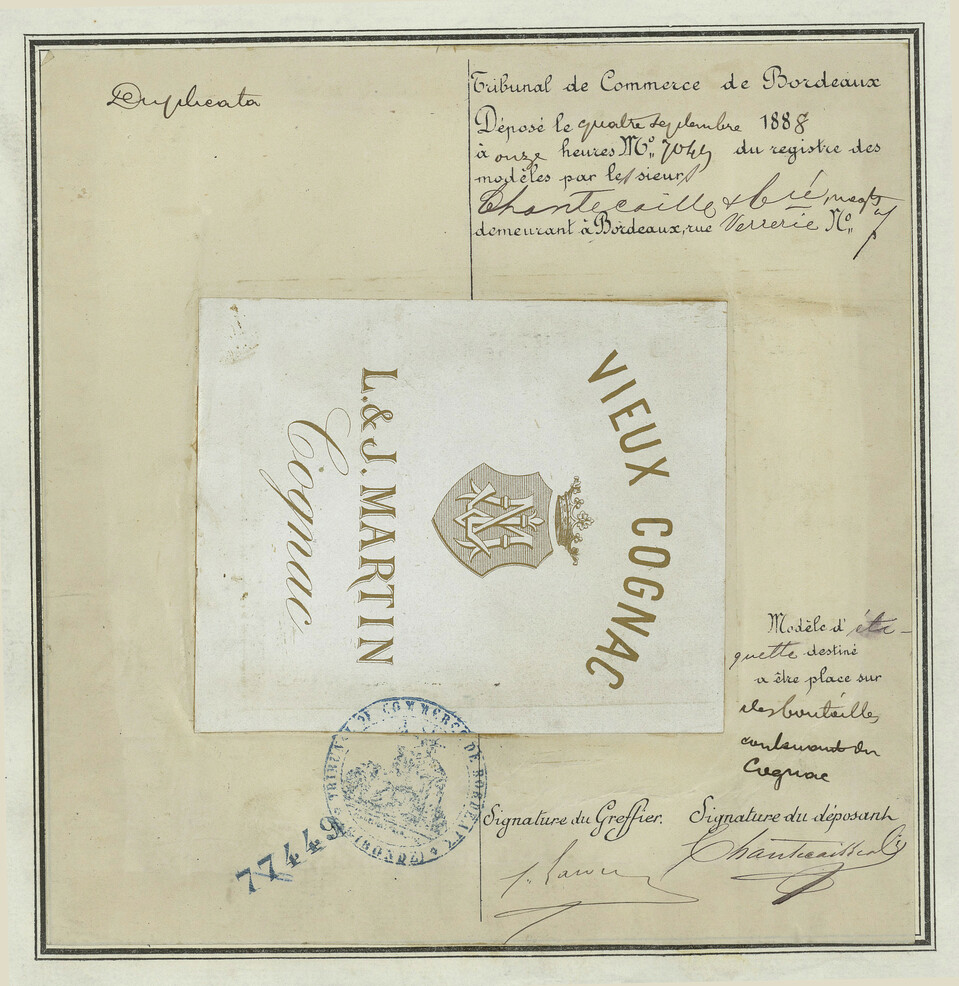 Duplicata
Tribunal de Commerce de Bordeaux
Déposé le quatre septembre 1888
à onze heures M. Nº 7049 du registre des
modèles par les sieurs
Chantecaille & Cie, negts
demeurant à Bordeaux, rue Verrerie Nº 7
VIEUX COGNAC
L. & J. MARTIN
Cognac
Modèle d' éti-
quette destiné
a être place sur
des bouteilles
contenant du
Cognac
TRIBUNAL DE COMMERCE DE BORDEAUX
(GIRONDE)
77449
Signature du Greffier.
Signature du déposant
Chantecaille & Cie